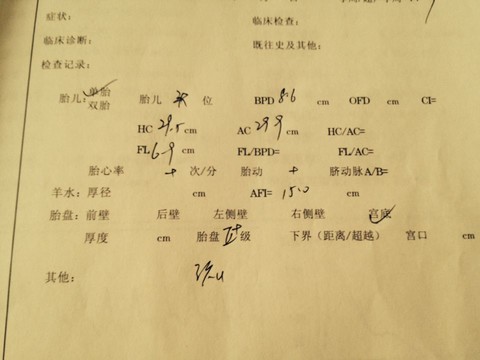 症状：
临床检查：
临床诊断：
既往史及其他：
检查记录：
胎儿：单胎 双胎 胎儿 位 BPD 8.6 cm OFD cm CI=
HC 29.5 cm AC 29.9 cm HC/AC=
FL 6.9 cm FL/BPD= FL/AC=
胎心率 + 次/分 胎动 + 脐动脉A/B=
羊水：厚径 cm AFI= 15.0 cm
胎盘：前壁 后壁 左侧壁 右侧壁 宫底
厚度 cm 胎盘 级 下界（距离/超越） 宫口 cm
其他：